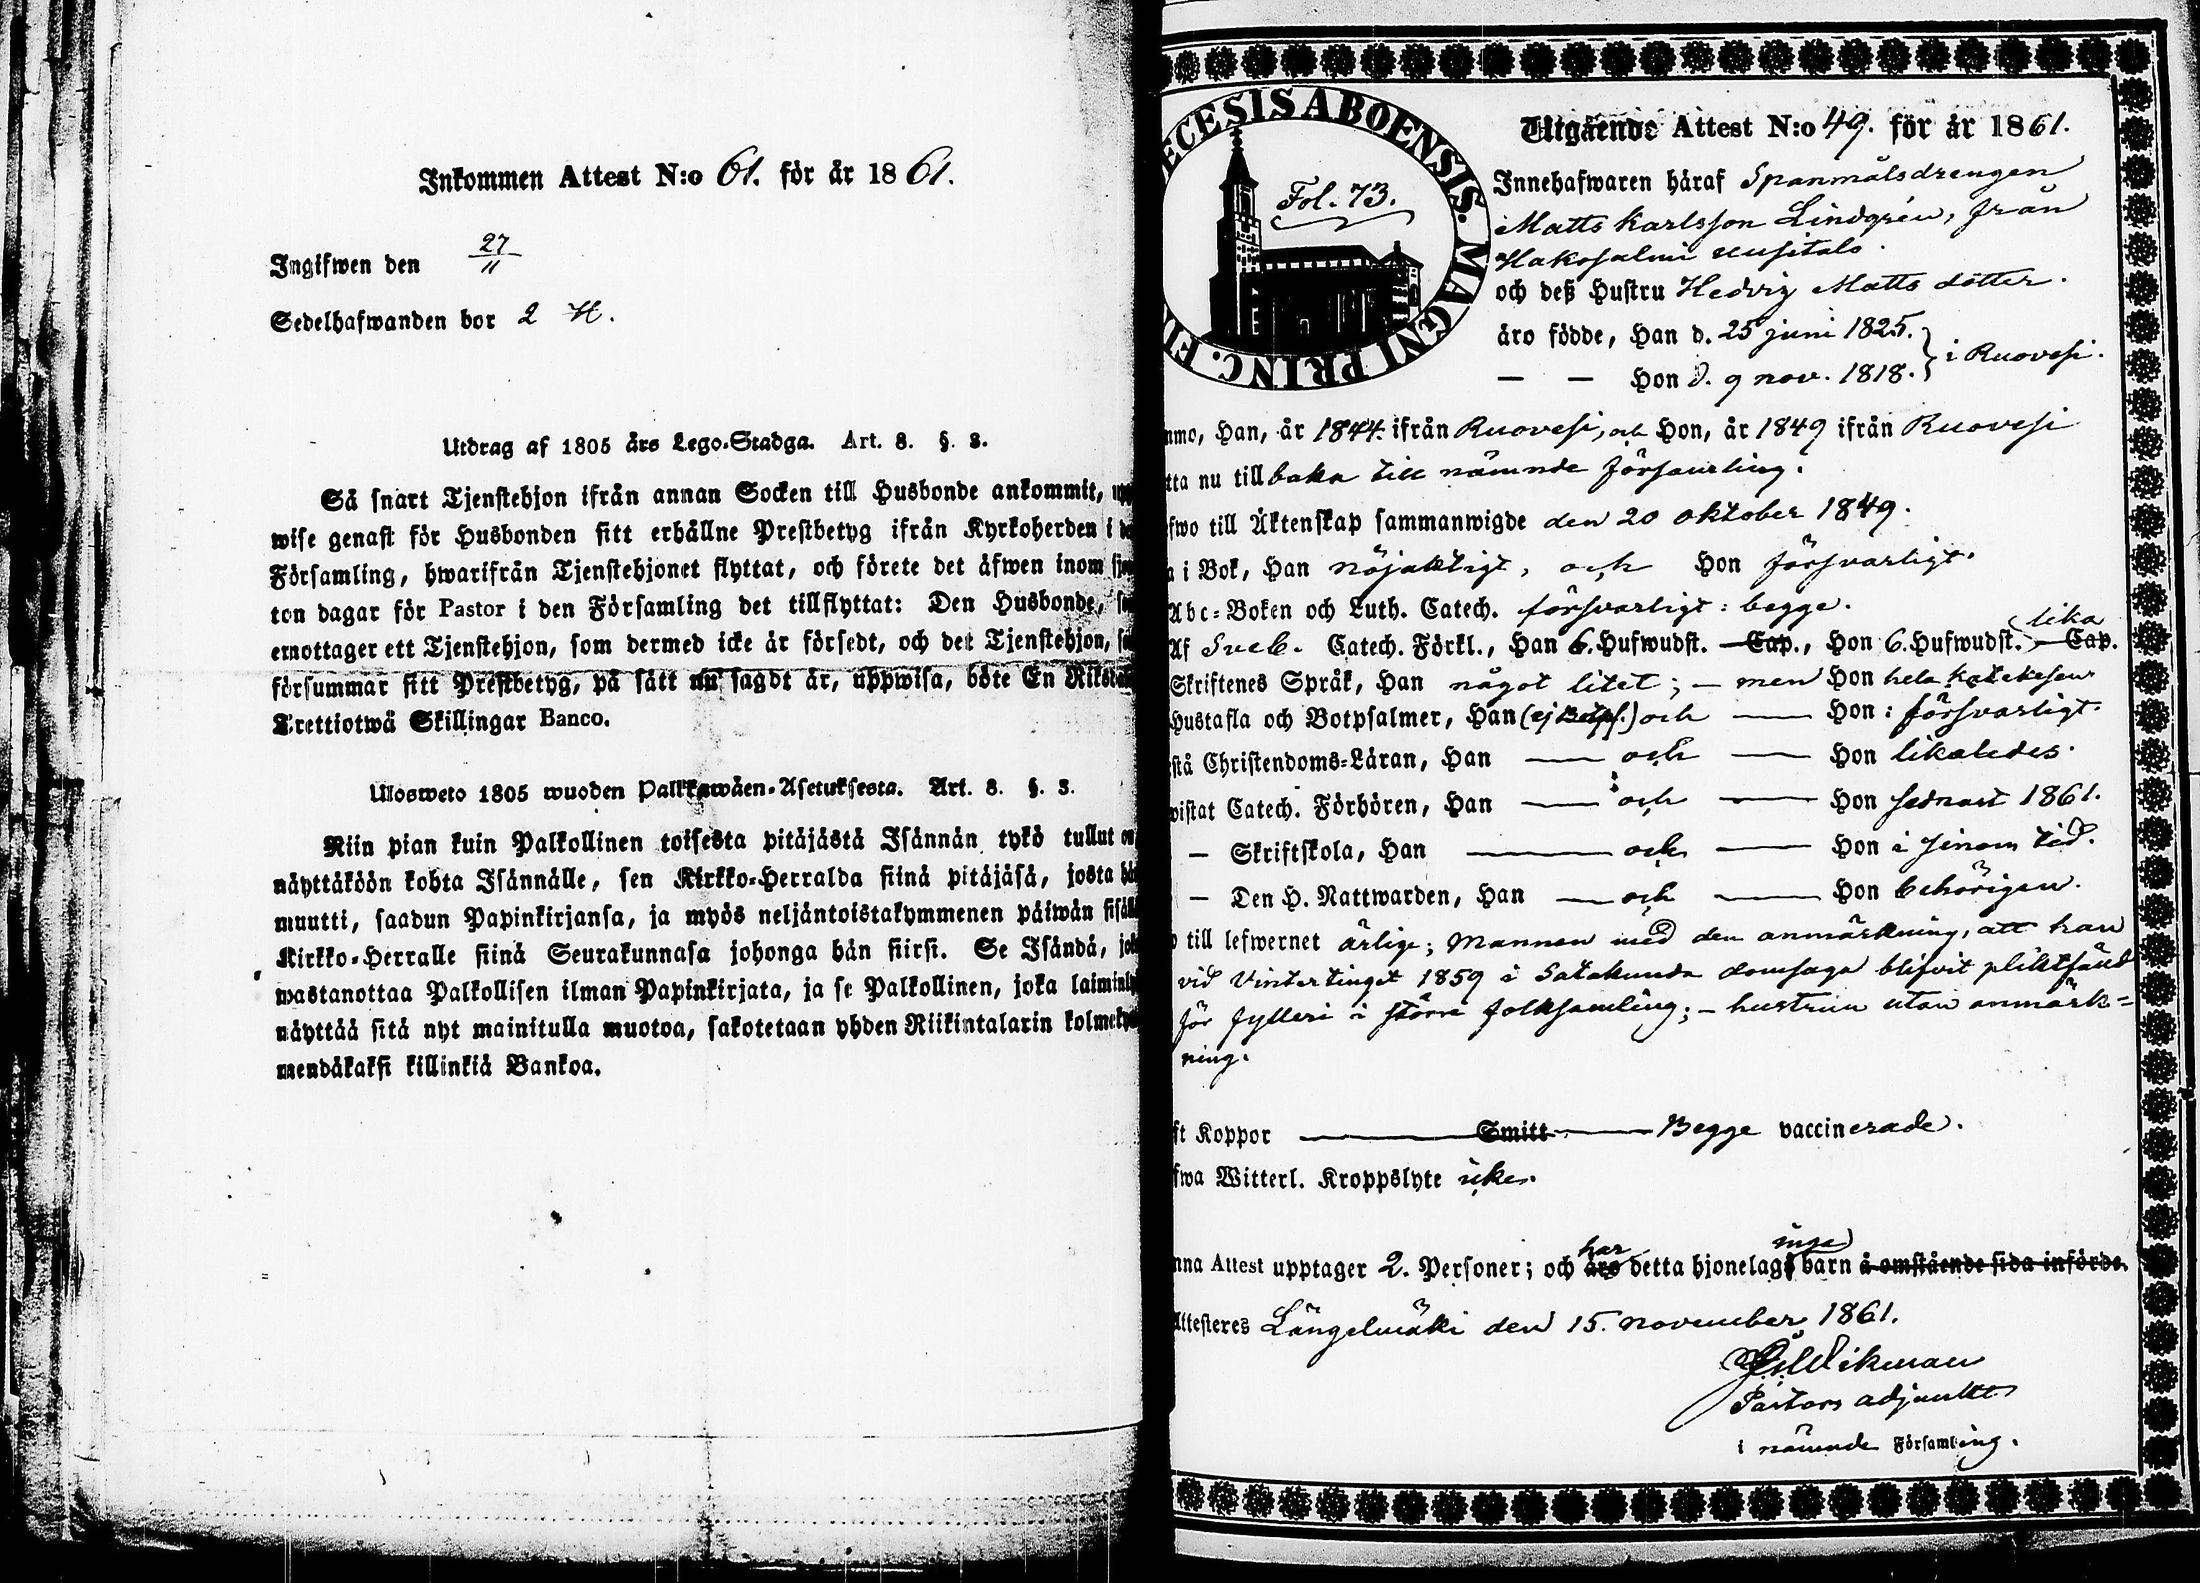 Inkommen Attest N:o 61. för år 1861.
Ingifwen den 27/11
Sedelhafwanden bor 2 H.
Utdrag af 1805 års Lego-Stadga. Art. 8. §. 3.
Så snart Tjenstehjon ifrån annan Socken till Husbonde ankommit,
wise genast för Husbonden sitt erhållne Prestbetyg ifrån Kyrkoherden i
Församling, hwarifrån Tjenstehjonet flyttat, och förete det äfwen inom
ton dagar för Pastor i den Församling det tillflyttat: Den Husbonde,
emottager ett Tjenstehjon, som dermed icke är försedt, och det Tjenstehjon,
försummar sitt Prestbetyg, på sätt nu sagdt är, uppwisa, böte En Riksd
Trettiotwå Skillingar Banco.
Ulosweto 1805 wuoden Palkkawäen-Asetuksesta. Art. 8. §. 3.
Niin pian kuin Palkollinen toisesta pitäjästä Isännän tykö tullut on
näyttäköön kohta Isännälle, sen Kirkko-Herralda siinä pitäjäsä, josta hän
muutti, saadun Papinkirjansa, ja myös neljäntoistakymmenen päiwän sisäll
Kirkko-Herralle siinä Seurakunnasa johonga hän siirsi. Se Isändä, jok
wastanottaa Palkollisen ilman Papinkirjata, ja se Palkollinen, joka laiminly
näyttää sitä nyt mainitulla muotoa, sakotetaan yhden Riikintalarin kolmekym
mendäkaksi killinkiä Bankoa.
ECESIS ABOENSIS. MAGNI PRINC. FIN
Fol. 73.
Utgående Attest N:o 49. för år 1861.
Innehafwaren häraf Spanmålsdrengen
Matts Karlsson Lindgrén, från
Hakosalmi Uusitalo
och deß Hustru Hedvig Matts dotter.
äro födde, Han d. 25 juni 1825.
— — Hon d. 9 nov. 1818. } i Ruovesi.
mmo, Han, år 1844. ifrån Ruovesi, och Hon, år 1849 ifrån Ruovesi
tta nu tillbaka till nämnde församling.
fwo till Äktenskap sammanwigde den 20 oktober 1849.
a i Bok, Han nöjaktigt, och Hon försvarligt.
Abc-Boken och Luth. Catech. försvarligt: begge.
Af Sveb. Catech. Förkl., Han 6. Hufwudst. — Cap., Hon 6. Hufwudst. lika — Cap.
Skriftenes Språk, Han något litet; — men Hon hela katekesen
Hustafla och Botpsalmer, Han (ej Botps.) och — Hon: försvarligt.
stå Christendoms-Läran, Han — och — Hon likaledes.
wistat Catech. Förhören, Han — och — Hon sednast 1861.
— Skriftskola, Han — och — Hon i sinom tid.
— Den H. Nattwarden, Han — och — Hon behörigen.
p till lefwernet ärlige; Mannen med den anmärkning, att han
vid Vintertinget 1859 i Satakunda domsaga blifvit pliktfäld
för fylleri i större folksamling; — hustrun utan anmärk=
ning.
ft Koppor — Smitt — Begge vaccinerade.
fwa Witterl. Kroppslyte icke.
nna Attest upptager 2. Personer; och äro har detta hjonelags inga barn å omstående sida införde.
Attesteres Längelmäki den 15. november 1861.
Wikman
Pastors adjunkt
i nämnde Församling.